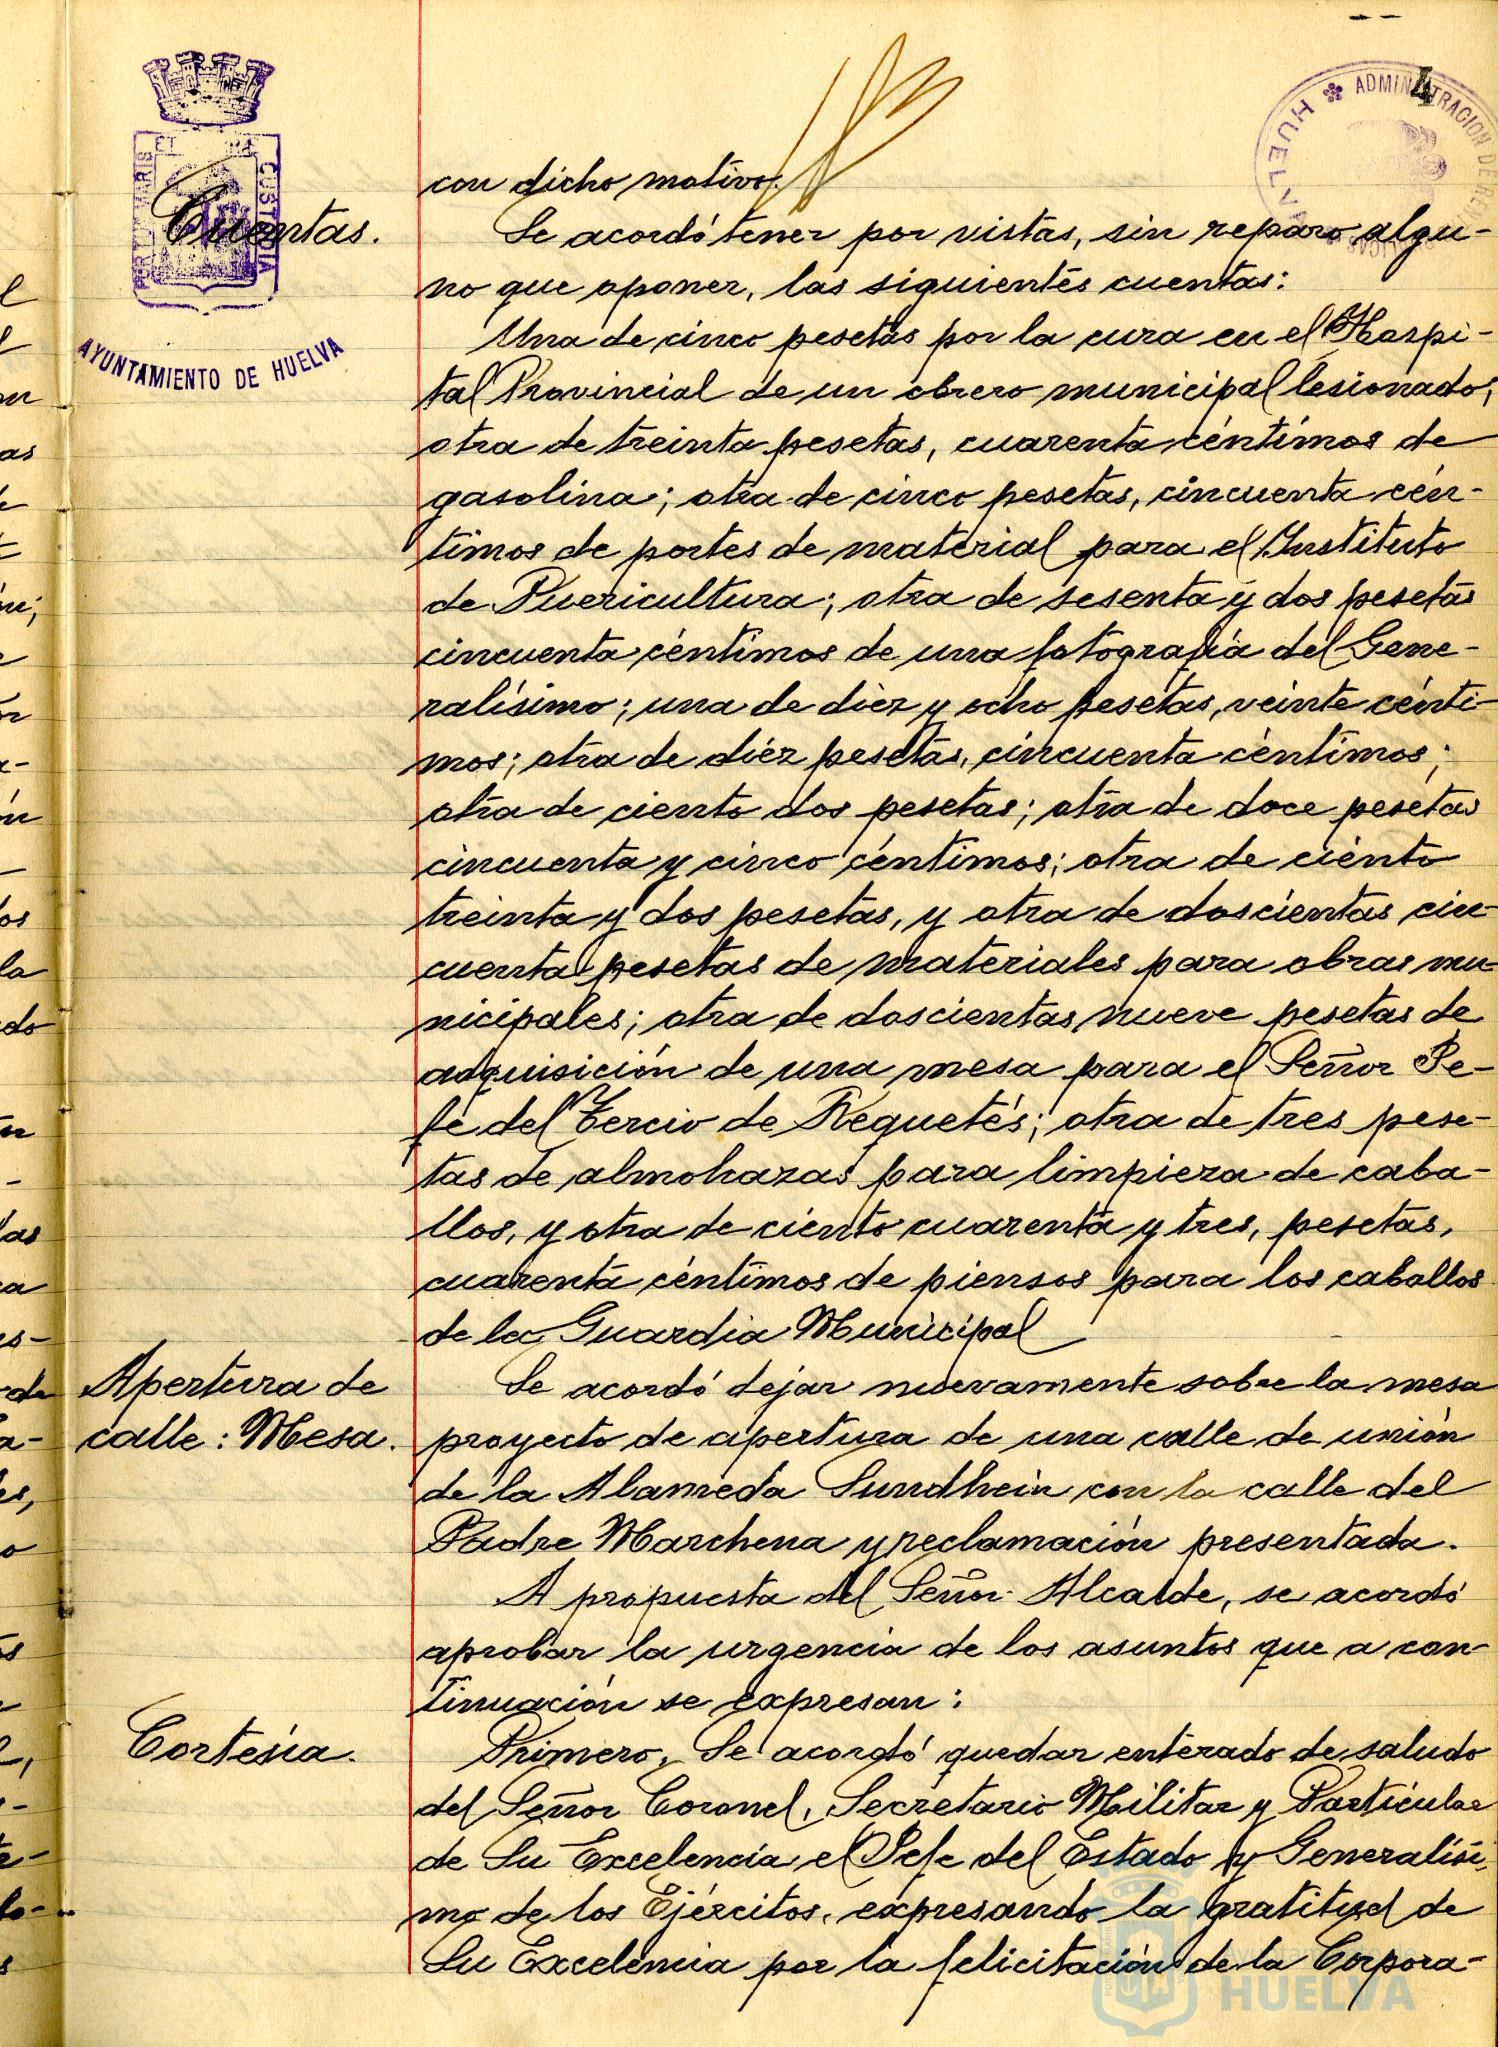 4
ADMINISTRACION DE RENTAS
HUELVA
PORTUS MARIS ET TERRAE CUSTODIA
AYUNTAMIENTO DE HUELVA
con dicho motivo.
Cuentas.
Se acordó tener por vistas, sin reparo algu-
no que oponer, las siguientes cuentas:
Una de cinco pesetas por la cura en el Hospi-
tal Provincial de un obrero municipal lesionado;
otra de treinta pesetas, cuarenta céntimos de
gasolina; otra de cinco pesetas, cincuenta cén-
timos de portes de material para el Instituto
de Puericultura; otra de sesenta y dos pesetas
cincuenta céntimos de una fotografía del Gene-
ralísimo; una de diez y ocho pesetas, veinte cénti-
mos; otra de diez pesetas, cincuenta céntimos;
otra de ciento dos pesetas; otra de doce pesetas
cincuenta y cinco céntimos; otra de ciento
treinta y dos pesetas, y otra de doscientas cin-
cuenta pesetas de materiales para obras mu-
nicipales; otra de doscientas nueve pesetas de
adquisición de una mesa para el Señor Je-
fe del Tercio de Requetés; otra de tres pese-
tas de almohazas para limpieza de caba-
llos, y otra de ciento cuarenta y tres, pesetas,
cuarenta céntimos de piensos para los caballos
de la Guardia Municipal
Apertura de
calle: Mesa.
Se acordó dejar nuevamente sobre la mesa
proyecto de apertura de una calle de unión
de la Alameda Sundhein con la calle del
Padre Marchena y reclamación presentada.
A propuesta del Señor Alcalde, se acordó
aprobar la urgencia de los asuntos que a con-
tinuación se expresan:
Cortesía.
Primero. Se acordó quedar enterado de saludo
del Señor Coronel, Secretario Militar y Particular
de Su Excelencia el Jefe del Estado y Generalísi-
mo de los Ejércitos, expresando la gratitud de
Su Excelencia por la felicitación de la Corpora-
HUELVA